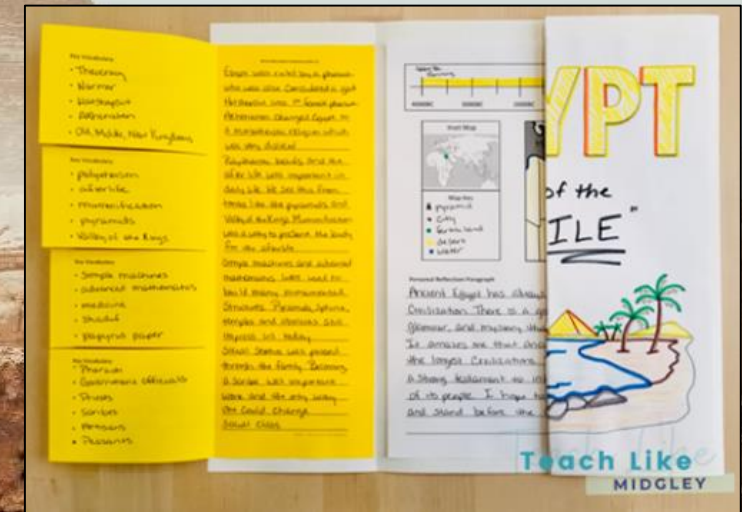 Key Vocabulary
• Theocracy
• Narmer
• Hatshepsut
• Akhenaten
• Old, Middle, New Kingdoms
Key Vocabulary
• polytheism
• afterlife
• mummification
• pyramids
• Valley of the Kings
Key Vocabulary
• Simple machines
• advanced mathematics
• medicine
• shaduf
• papyrus paper
Key Vocabulary
• Pharaoh
• Government officials
• Priests
• Scribes
• Artisans
• Peasants
Egypt was ruled by a pharaoh
who was also considered a god
Hatshepsut was 1st female pharaoh
Akhenaten changed Egypt to
a monotheism religion which
was very disliked
Polytheistic beliefs and the
after life was important in
daily life. We see this from
tombs like the pyramids and
Valley of the Kings. Mummification
was a way to prepare the body
for the afterlife
Simple machines and advanced
mathematics were used to
build many monumental
Structures. Pyramids, Sphinx,
temples and obelisks still
impress us today
Social Status was passed
through the family. Becoming
a Scribe was important
work and the only way
one could change
Social class
4000BC 3000BC 2000BC
Inset Map
Map Key
pyramid
City
fertile land
desert
water
Personal Reflection Paragraph
Ancient Egypt has always
Civilization. There is a
glamour, and mystery
It amazes me that
the longest Civilizations
a strong testament to
of its people. I hope to
and stand before the
YPT
of the
ILE"
Teach Like
MIDGLEY